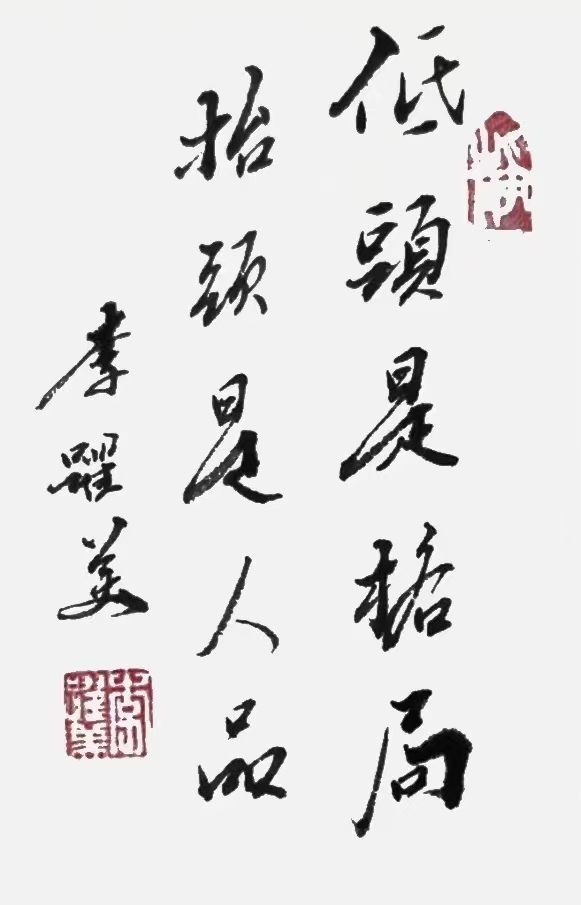 低頭是格局
抬頭是人品
李躍美